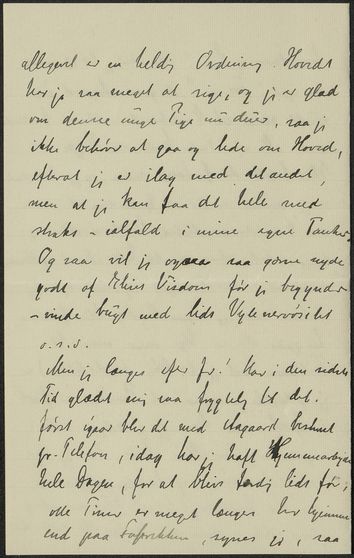 allegevel er en heldig Ordning. Hovedet
har jo saa meget at sige, og jeg er glad
om denne unge Pige nu duer, saa jeg
ikke behøver at gaa og lede om Hoved,
efterat jeg er ilag med det andet,
men at jeg kan faa det hele med
straks – ialfald i mine egne Tanker.
Og saa vil jeg ogsaa saa gerne nyde
godt af Elius Visdom før jeg begynder
– vinde bugt med lidt
o.s.v.
Men jeg længes efter før! Har i den sidste
Tid glædet mig saa frygtelig til det.
først igaar blev det med Aagaard bestemt
pr. Telefon, idag har jeg haft
hele Dagen, for at blive færdig lidt før,
otte Timer er meget længere her hjemme
end paa, synes jeg, saa